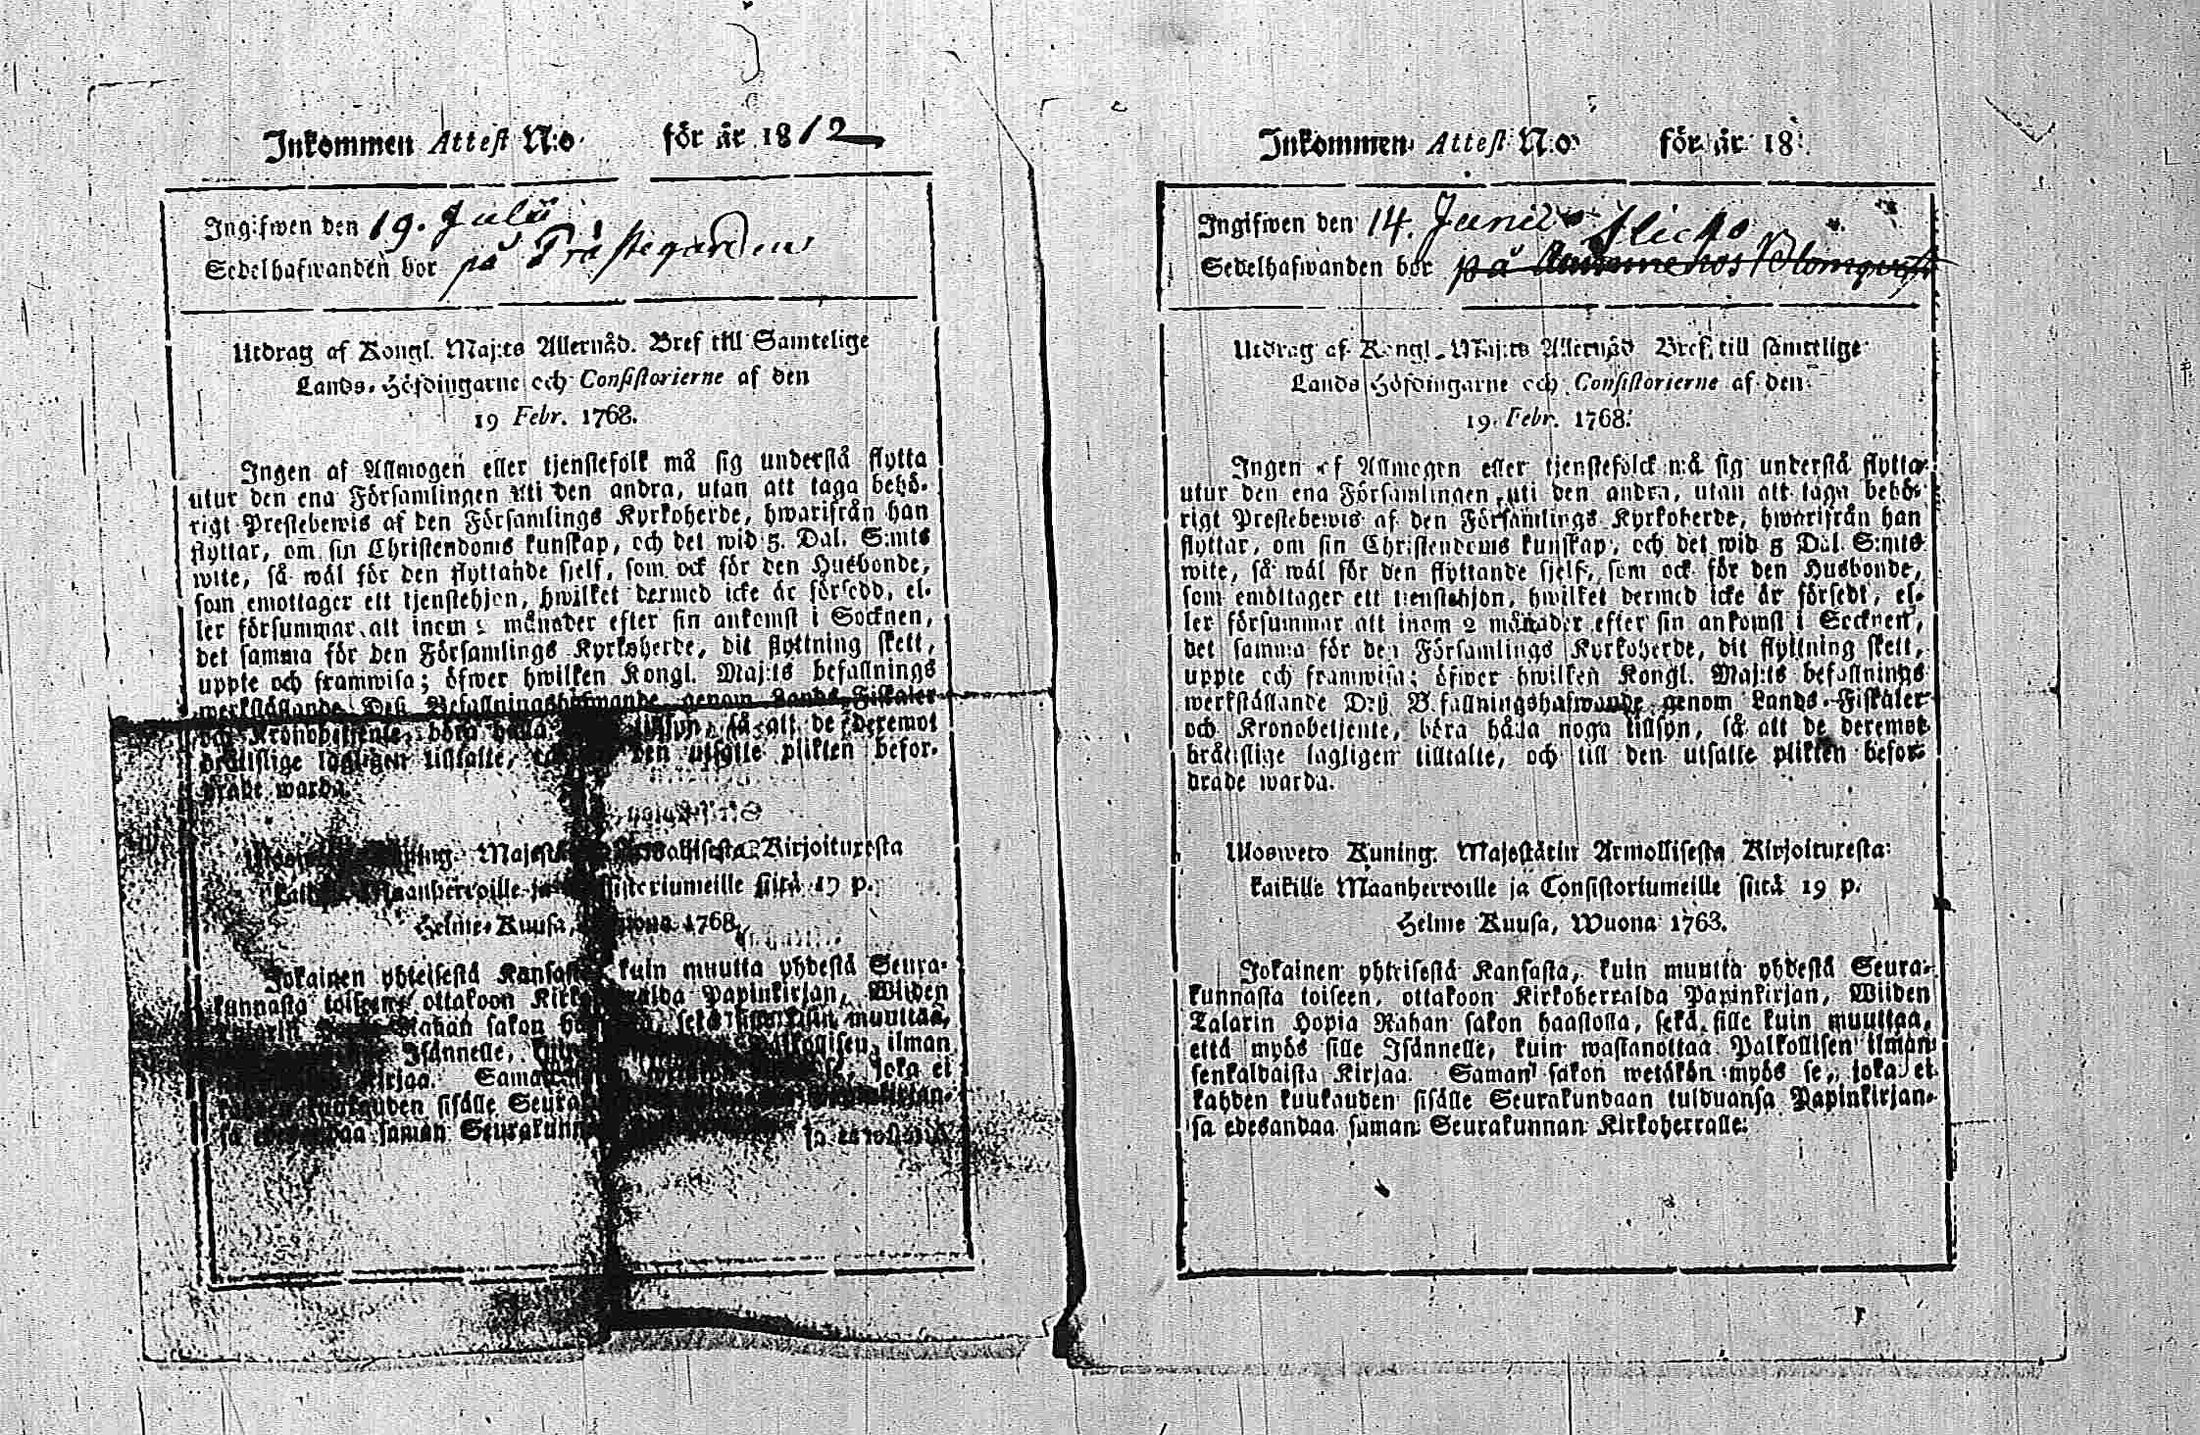 Inkommen Attest N:o för år 1812
Ingifwen den 19. Julii
Sedelhafwanden bor på Prästegården
Utdrag af Kongl. Maj:ts Allernåd. Bref till Samtelige
Lands-Höfdingarne och Consistorierne af den
19 Febr. 1768.
Ingen af Allmogen eller tjenstefolk må sig understå flytta
utur den ena Församlingen uti den andra, utan att taga behö-
rigt Prestebewis af den Församlings Kyrkoherde, hwarifrån han
flyttar, om sin Christendoms kunskap, och det wid 5. Dal. S:mts
wite, så wäl för den flyttande sjelf, som ock för den Husbonde,
som emottager ett tjenstehjon, hwilket dermed icke är försedd, el-
ler försummar att inom 2 månader efter sin ankomst i Socknen,
det samma för den Församlings Kyrkoherde, dit flyttning skett,
uppte och framwisa; öfwer hwilken Kongl. Maj:ts befallnings
werkställande Deß Befallningshafwande genom Lands-Fiskaler
och Kronobetjente, böra hålla tillsyn, så att de deremot
brottslige lagligen tilltalte, den utfalle plikten befor-
drade warda.
Kuning. Majest Kirjoituxesta
Maanherroille ja siitä 19 p.
Helme-Kuusa, 1768.
Jokainen yhteisestä Kansasta kuin muutta yhdestä Seura-
kunnasta toiseen, ottakoon Papinkirjan, Wiiden
Rahan sakon sekä muuttaa,
Isännelle, Palkollisen ilman
Kirjaa. Saman joka ei
kuukauden sisälle Papinkirjan-
sa saman Seurakunn
Inkommen Attest N:o för år 18
Ingifwen den 14. Junii
Sedelhafwanden bor på hos Blomqvist
Utdrag af Kongl. Maj:ts Allernåd Bref till samtelige
Lands Höfdingarne och Consistorierne af den
19. Febr. 1768.
Ingen af Allmogen eller tjenstefolck må sig understå flytta
utur den ena Församlingen uti den andra, utan att taga behö-
rigt Prestebewis af den Församlings Kyrkoherde, hwarifrån han
flyttar, om sin Christendoms kunskap, och det wid 5 Dal. S:mts
wite, så wäl för den flyttande sjelf, som ock för den Husbonde,
som emottager ett tjenstehjon, hwilket dermed icke är försedt, el-
ler försummar att inom 2 månader efter sin ankomst i Socknen,
det samma för den Församlings Kyrkoherde, dit flyttning skett,
uppte och framwisa; öfwer hwilken Kongl. Maj:ts befallnings
werkställande Deß Befallningshafwande genom Lands-Fiskaler
och Kronobetjente, böra hålla noga tillsyn, så att de deremot
brottslige lagligen tilltalte, och till den utfalle plikten befor-
drade warda.
Ulosweto Kuning. Majestätin Armollisesta Kirjoituxesta
kaikille Maanherroille ja Consistoriumeille siitä 19 p.
Helme Kuusa, Wuona 1768.
Jokainen yhteisestä Kansasta, kuin muutta yhdestä Seura-
kunnasta toiseen, ottakoon Kirkoherralda Papinkirjan, Wiiden
Talarin Hopia Rahan sakon haastolla, sekä sille kuin muuttaa,
että myös sille Isännelle, kuin wastanottaa Palkollisen ilman
senkaldaista Kirjaa. Saman sakon wetäkön myös se, joka ei
kahden kuukauden sisälle Seurakundaan tulduansa Papinkirjan-
sa edesandaa saman Seurakunnan Kirkoherralle.